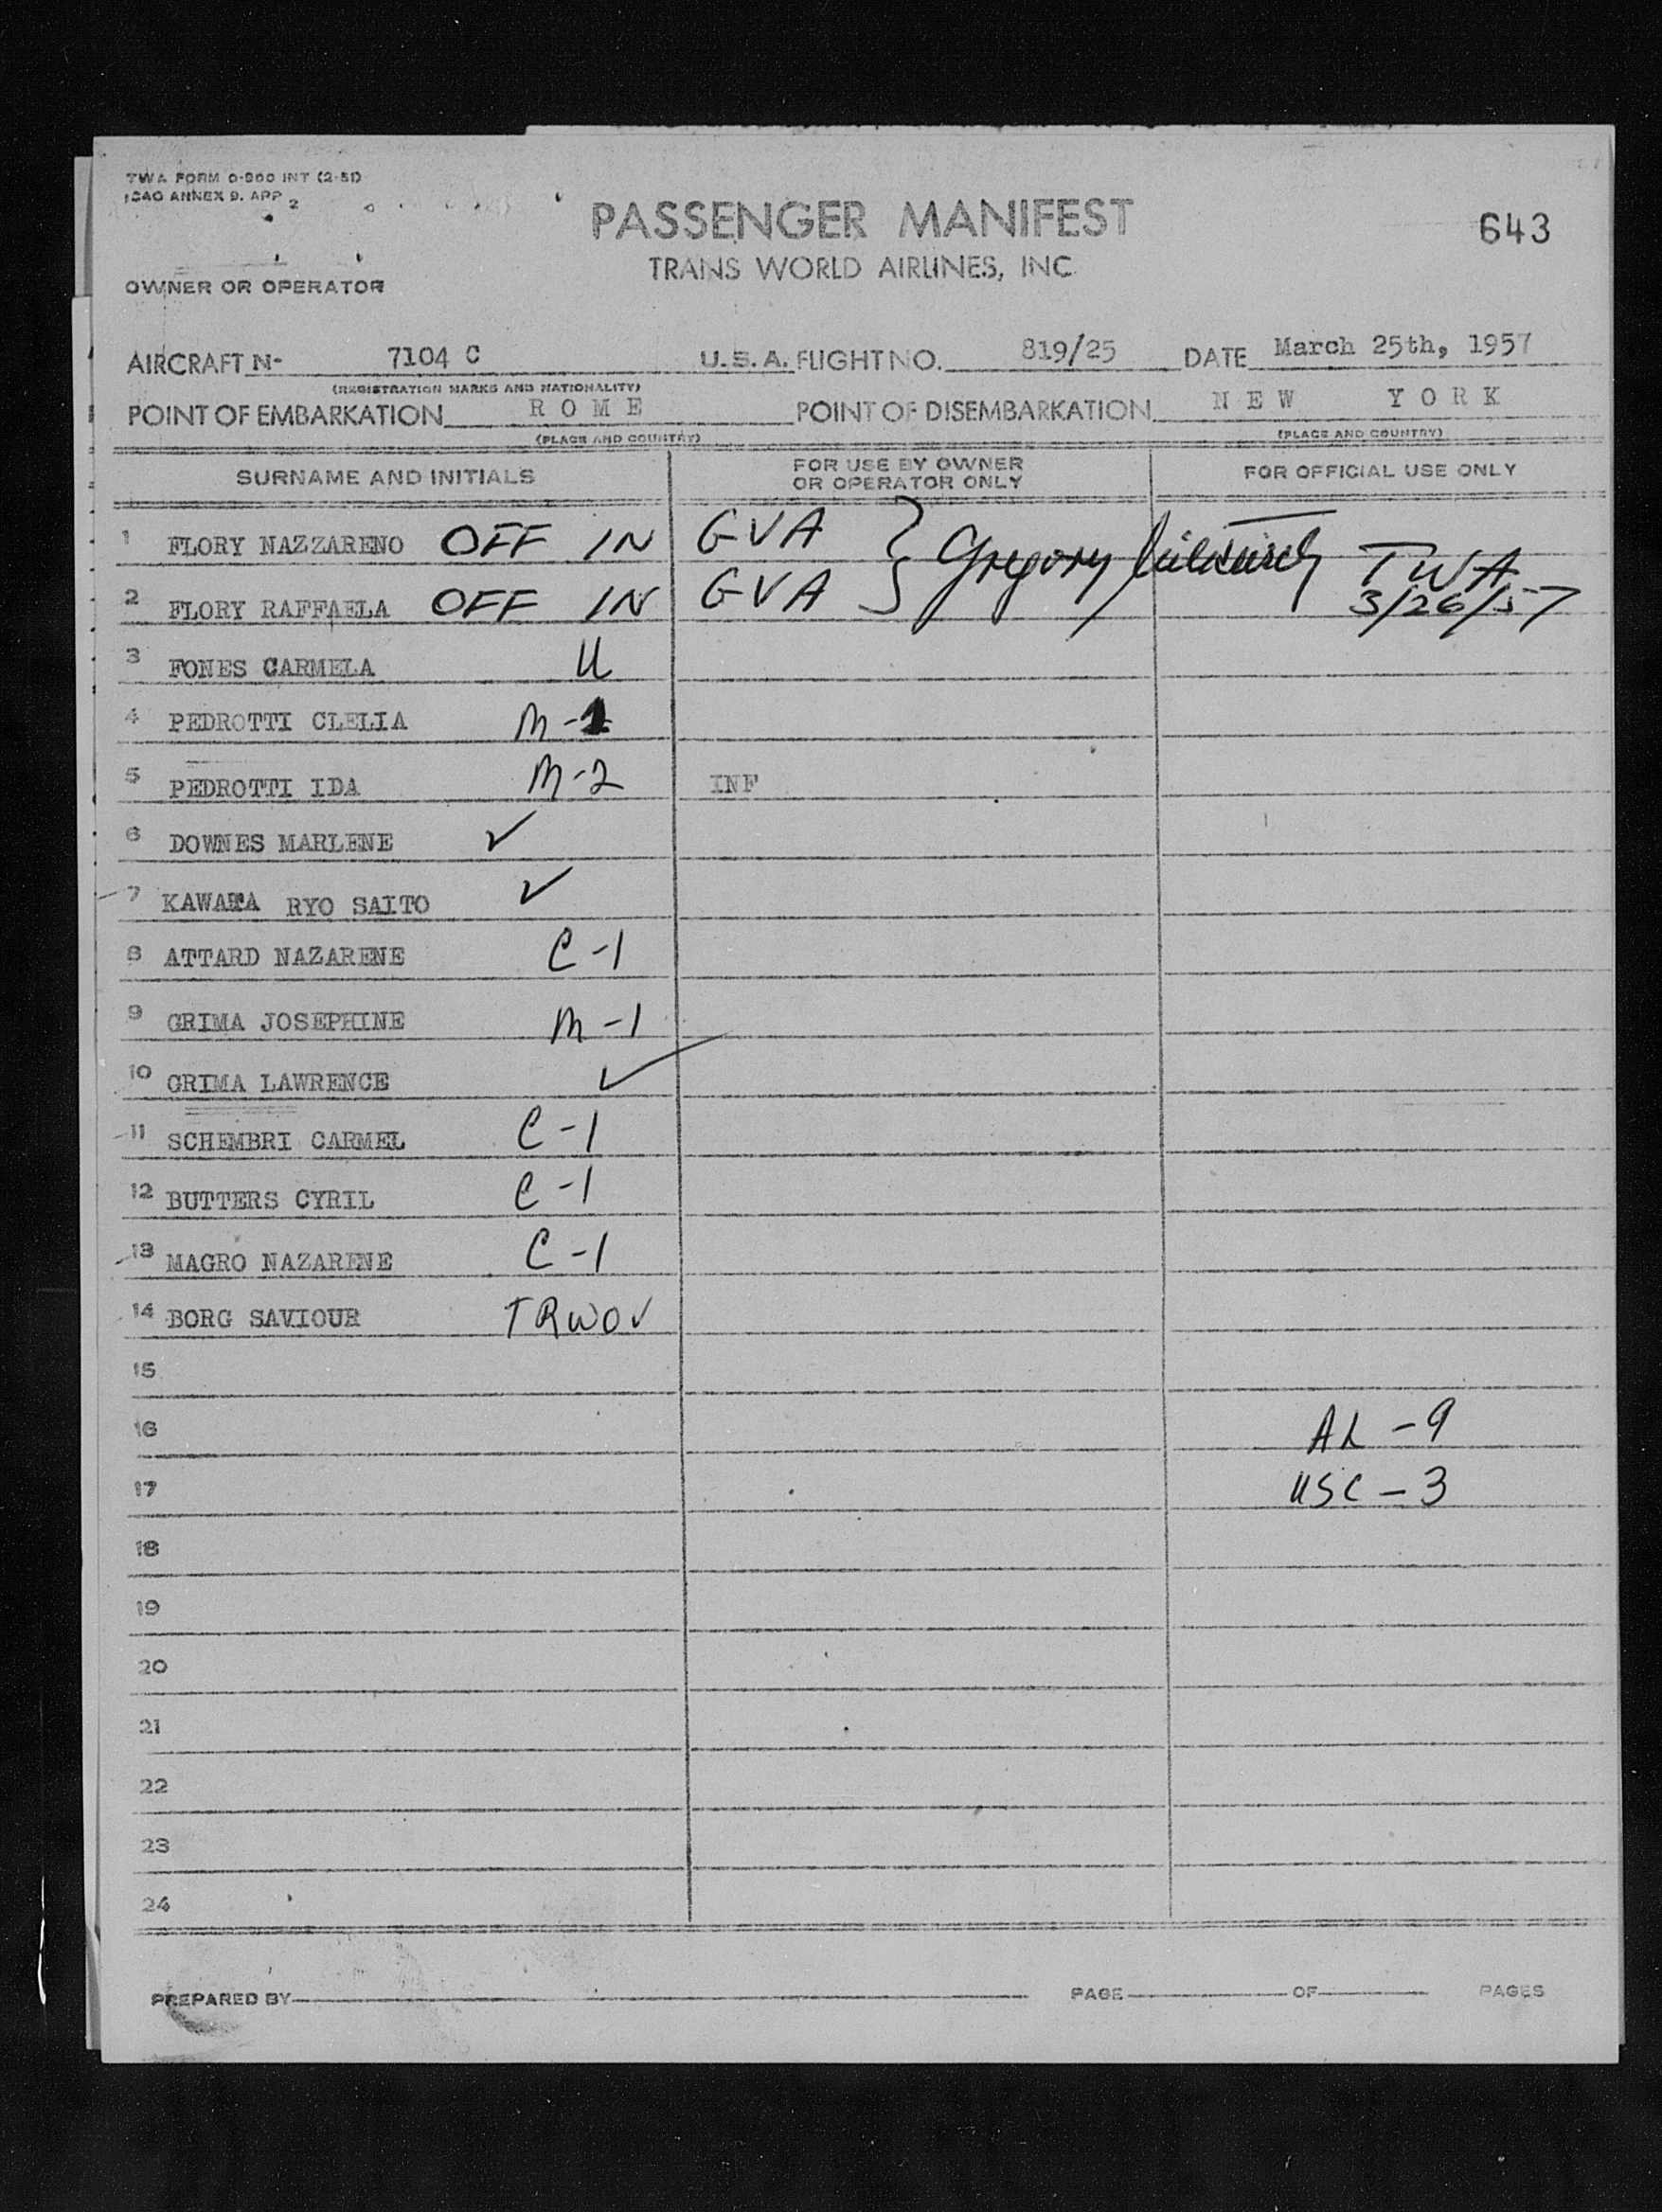 TWA FORM O-800 INT (2-51)
ICAO ANNEX 9. APP 2
PASSENGER MANIFEST
643
TRANS WORLD AIRLINES, INC
OWNER OR OPERATOR
AIRCRAFT N- 7104 C U.S.A. FLIGHT NO. 819/25 DATE March 25th, 1957
(REGISTRATION MARKS AND NATIONALITY)
POINT OF EMBARKATION R O M E POINT OF DISEMBARKATION N E W Y O R K
(PLACE AND COUNTRY) (PLACE AND COUNTRY)
SURNAME AND INITIALS FOR USE BY OWNER OR OPERATOR ONLY FOR OFFICIAL USE ONLY
1 FLORY NAZZARENO OFF IN GVA } Gregory TWA
2 FLORY RAFFAELA OFF IN GVA 3/26/57
3 FONES CARMELA U
4 PEDROTTI CLELIA M-1
5 PEDROTTI IDA M-2 INF
6 DOWNES MARLENE ✓
7 KAWATA RYO SAITO ✓
8 ATTARD NAZARENE C-1
9 GRIMA JOSEPHINE M-1
10 GRIMA LAWRENCE ✓
11 SCHEMBRI CARMEL C-1
12 BUTTERS CYRIL C-1
13 MAGRO NAZARENE C-1
14 BORG SAVIOUR TRWOV
15
16 AL - 9
17 USC - 3
18
19
20
21
22
23
24
PREPARED BY PAGE OF PAGES